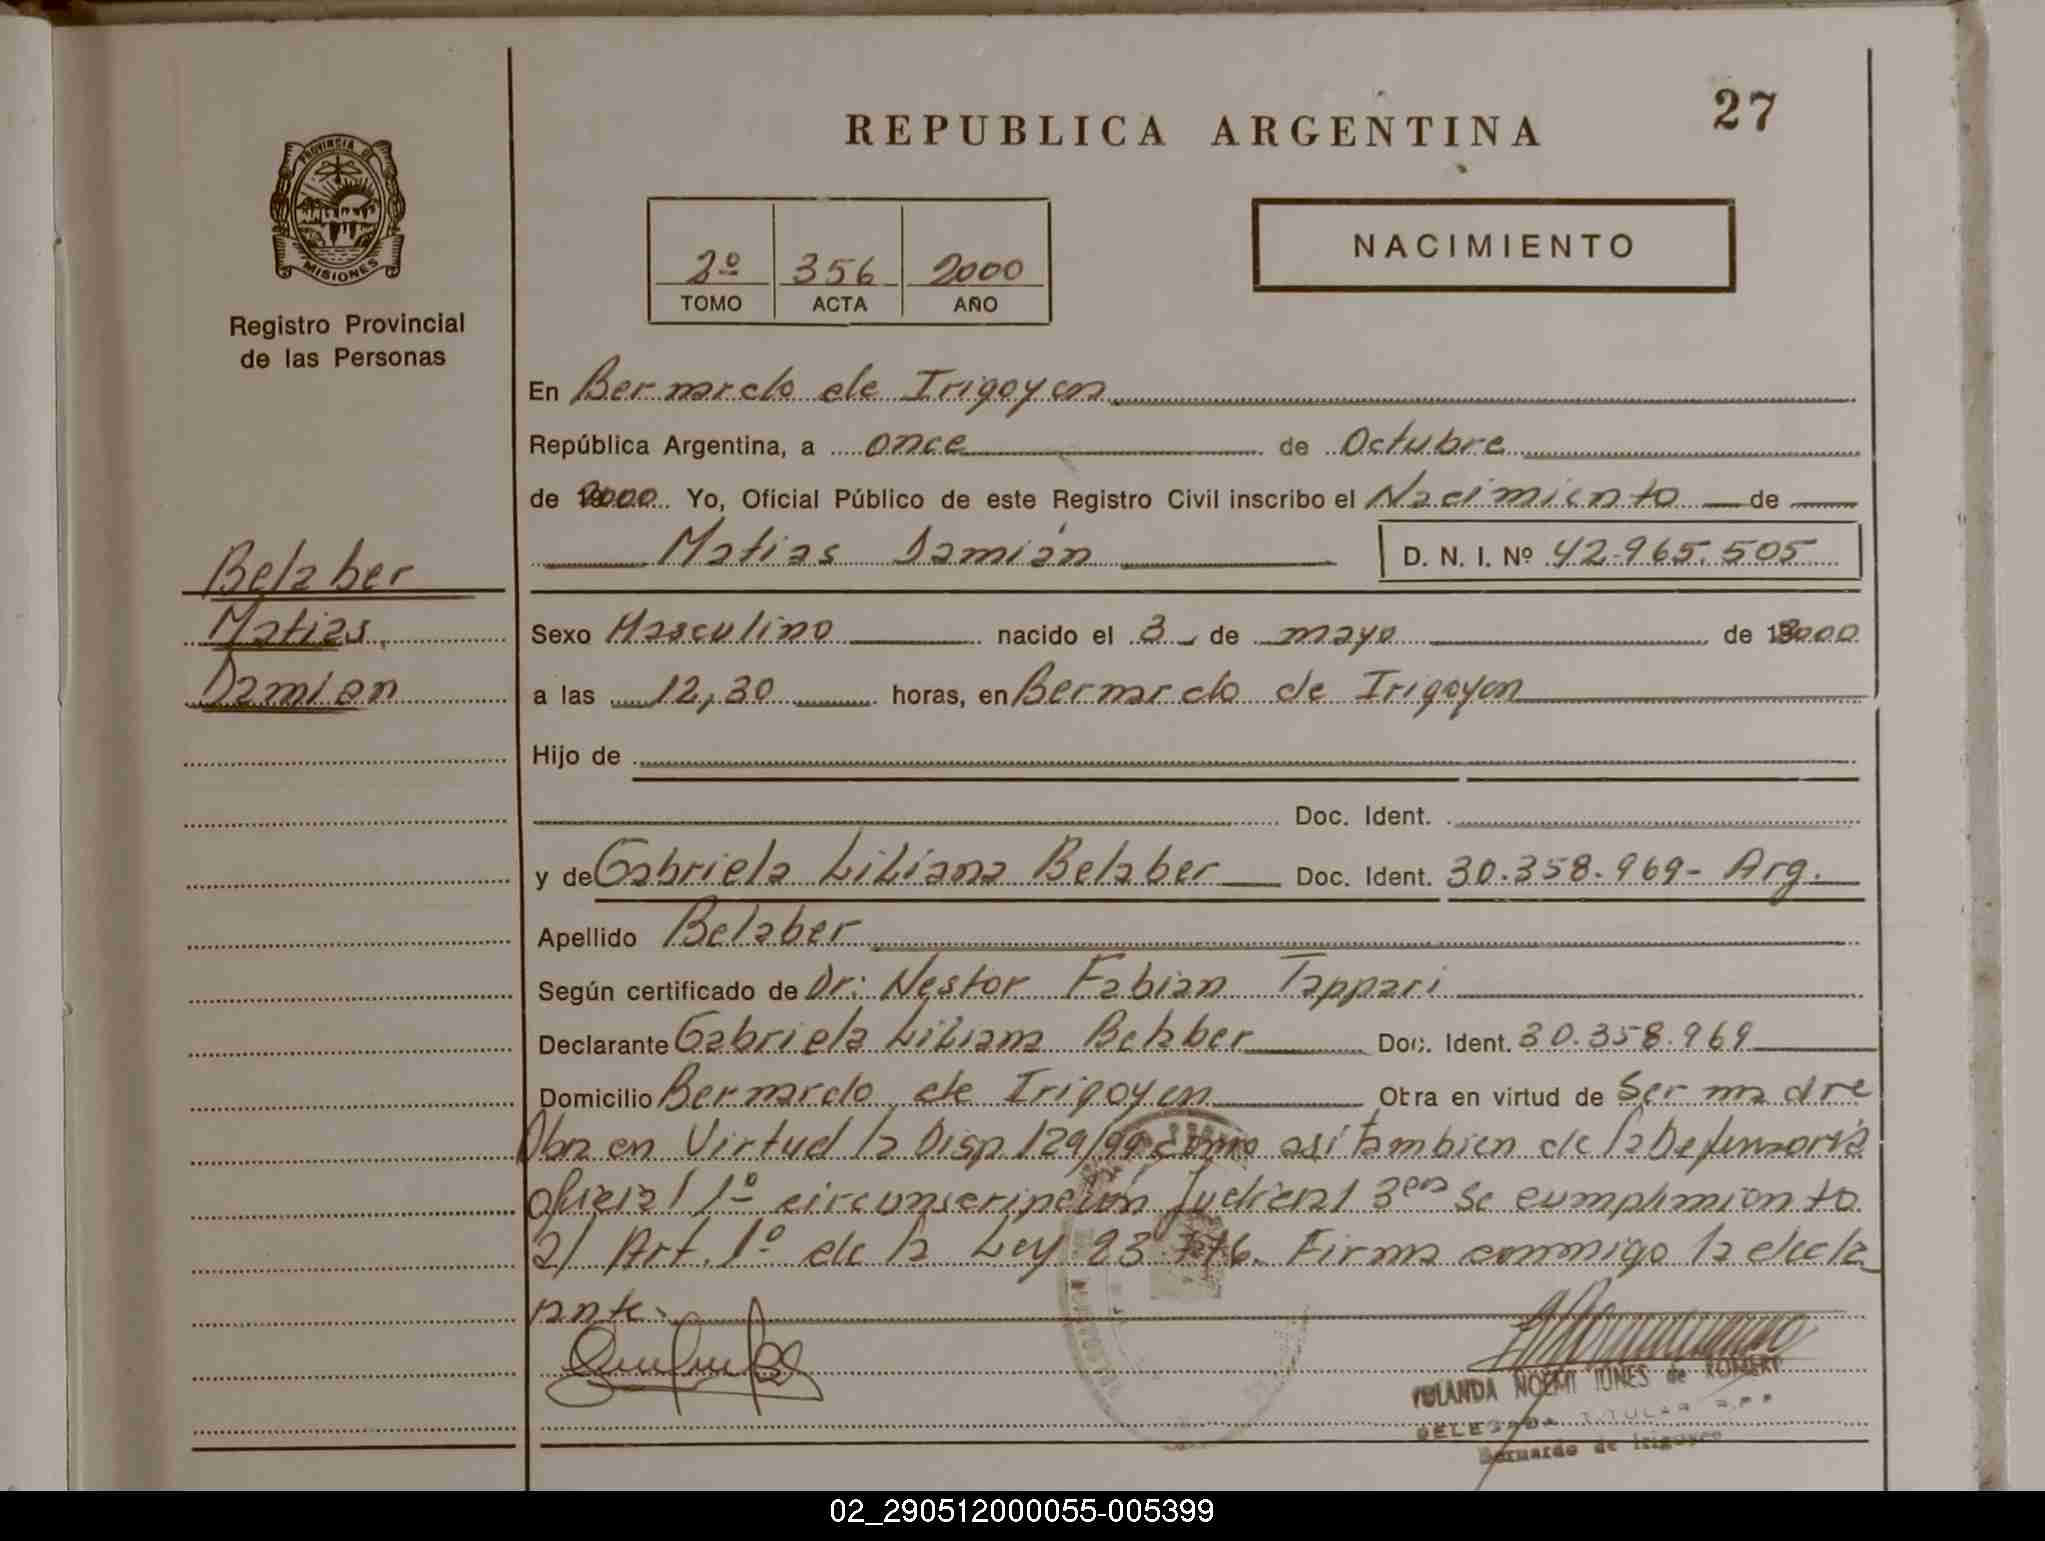 REPUBLICA ARGENTINA
27
PROVINCIA DE
MISIONES
Registro Provincial
de las Personas
2º 356 2000
TOMO ACTA AÑO
NACIMIENTO
En Bernardo de Irigoyen
República Argentina, a once de Octubre
de 2000 Yo, Oficial Público de este Registro Civil inscribo el Nacimiento de
Matias Damián D. N. I. Nº 42.965.505
Belaber
Matias
Damian
Sexo Masculino nacido el 3 de mayo de 2000
a las 12,30 horas, en Bernardo de Irigoyen
Hijo de
Doc. Ident.
y de Gabriela Liliana Belaber Doc. Ident. 30.358.969- Arg.
Apellido Belaber
Según certificado de Dr: Nestor Fabian Tappari
Declarante Gabriela Liliana Belaber Doc. Ident. 30.358.969
Domicilio Bernardo de Irigoyen Obra en virtud de Ser madre
Obra en Virtud la Disp. 129/99 como asi tambien de la Defensoria
Oficial 1º circunscripción Judicial 3era Se cumplimiento
al Art. 1º de la Ley 23.776. Firma conmigo la decla
rante.
YOLANDA NOEMI IUNES de ROMERO
DELEGADA TITULAR R.P.P.
Bernardo de Irigoyen
02_290512000055-005399